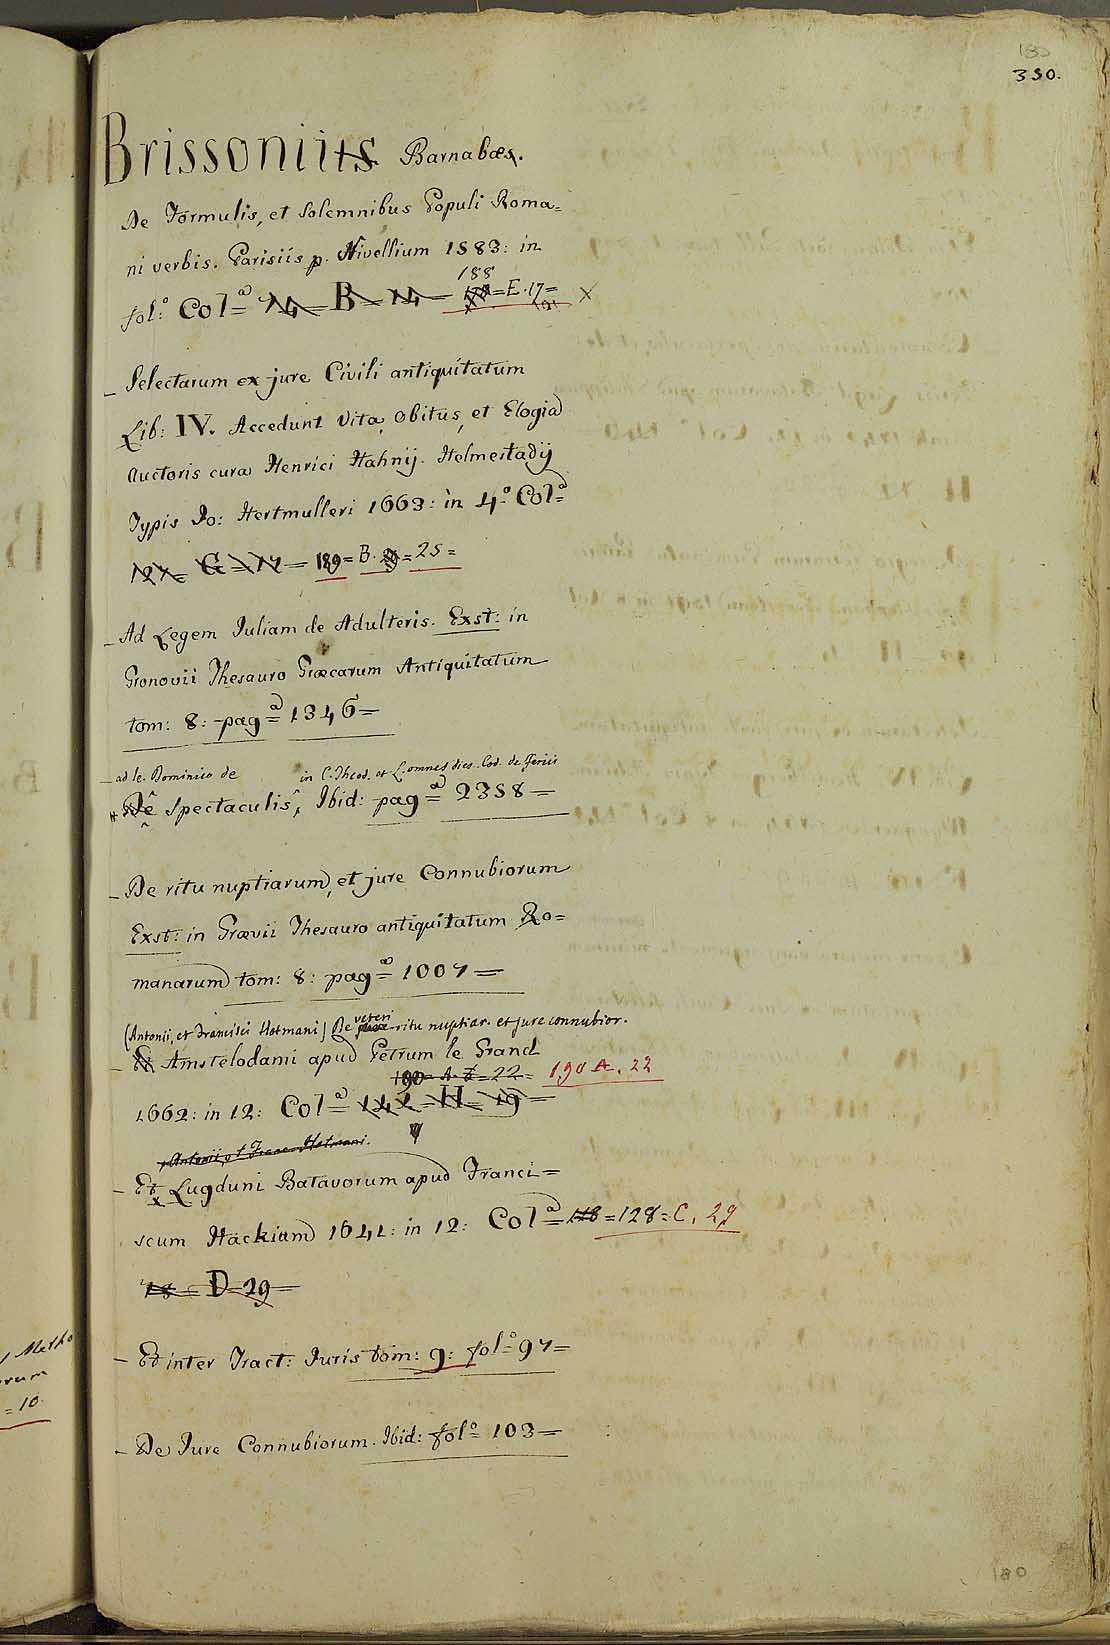 180
350.
Brissonius Barnabas.
De Formulis, et solemnibus Populi Roma=
ni verbis. Parisiis p. Nivellium 1583: in
188
fol:º Colª= 74= B= 14= =E.17=
_ Selectarum ex jure Civili antiquitatum
Lib: IV. Accedunt Vita, obitus, et Elogia
Auctoris cura Henrici Hahnij. Helmestadij
Typis Io: Hertmulleri 1663: in 4º. Colª=
127= G= 17= 189= B. = 25=
_ Ad Legem Iuliam de Adulteris. Exst: in
Gronovii Thesauro Græcarum Antiquitatum
tom: 8: pagª= 1346=
_ ad le. Dominico de in C. Theod. et L. omnes dies. Cod. de Feriis
De Spectaculis, Ibid: pagª= 2358=
_ De ritu nuptiarum, et jure Connubiorum
Exst: in Grævii Thesauro antiquitatum Ro=
manarum tom: 8: pagª= 1007=
veteri
(Antonii, et Francisci Hotmani) De ritu nuptiar. et jure connubior.
_ Et Amstelodami apud Petrum le Grand
190= A. = 22= 190 A. 22
1662: in 12: Colª= 141= H= 19=
Antonii, et Franc. Hotmani.
_ Et Lugduni Batavorum apud Franci=
scum Hackium 1641: in 12: Colª= 118=128= C. 29
18= D=29=
_ Et inter Tract: Iuris tom: 9: folº= 97=
_ De Jure Connubiorum. Ibid: folº= 103=
Metho
rum
=10
180